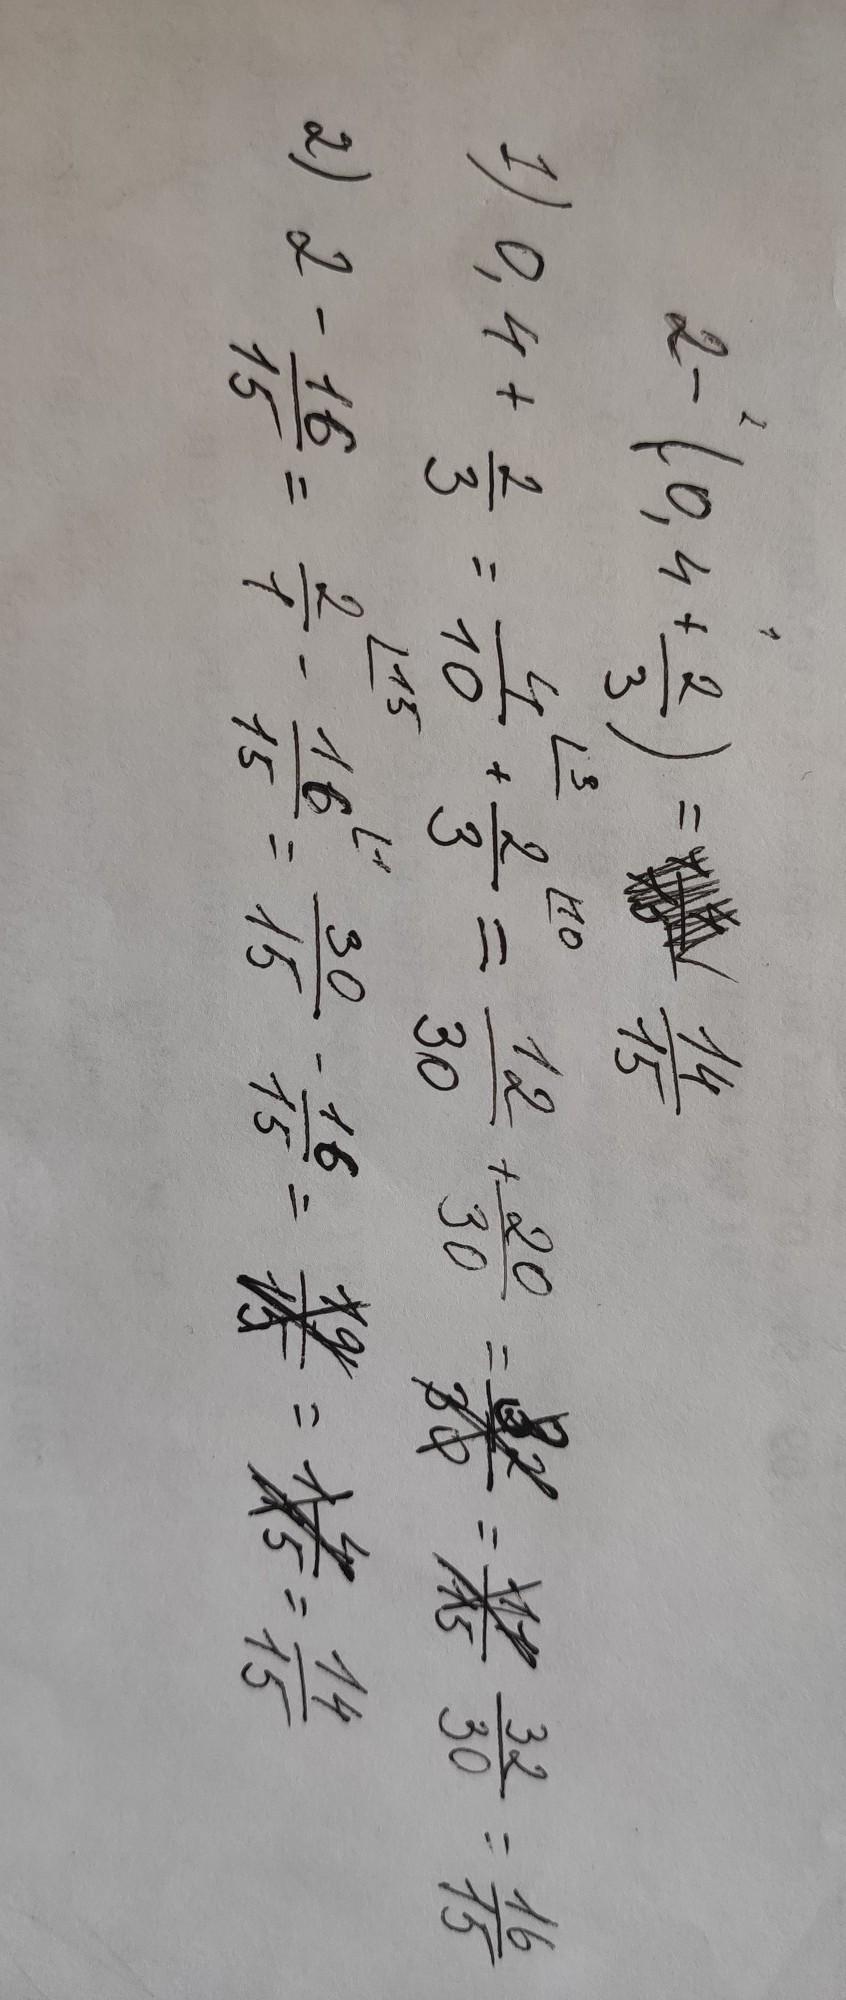 2 - (0,4 + 2/3) = 14/15
1) 0,4 + 2/3 = 4/10 + 2/3 = 12/30 + 20/30 = 32/30 = 32/30 = 16/15
2) 2 - 16/15 = 2/1 - 16/15 = 30/15 - 16/15 = 14/15